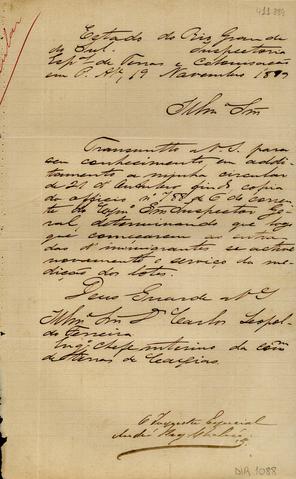 411.889
Estado do Rio Grande
do Sul. Inspectoria
Esp.al de Terras e Colonisação
em P. Al.e, 19 Novembro 1890
Illmo Snr
Transmitto a V. S. para
seu conhecimento, em addi-
tamento a minha circular
de 21 d'Outubro findo, copia
do officio nº 88 de 6 do corren-
te do Snr Inspector Ge-
ral, determinando que logo
que começarem as entra-
das d'immigrantes se active
novamente o serviço da me-
dição dos lotes.
Deus Guarde a V S
Illmo Snr Dr Carlos Leopol-
do Ferreira
Engº Chefe interino da com
de terras de Caxias
O Inspector Especial
DIR. 1088